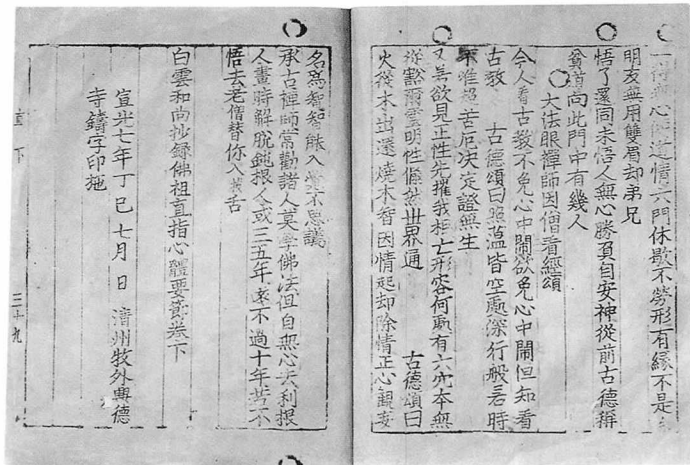 一得無心便道情六門休歇不勞形有緣不是
朋友無用雙眉却弟兄
悟了還同未悟人無心勝負自安神從前古德稱
貧道向此門中有幾人
大法眼禪師因僧看經頌
今人看古教不免心中鬧欲免心中鬧但知看
古教 古德頌曰照蘊皆空處深行般若時
不唯超苦厄決定證無生
又若欲見正性先摧我相亡形容何處有六穴本無
從豁爾靈明性倏然世界通 古德頌曰
火從木出還燒木智因情起却除情正心觀妄
名爲智智能入 不思議
承古禪師常勸諸人莫學佛法但自無心去利根
人晝時解脫鈍根人或三五年遠不過十年若不
悟去老僧替你入 舌
白雲和尚抄錄佛祖直指心體要節卷下
宣光七年丁巳七月 日 淸州牧外興德
寺鑄字印施
直下 三十九